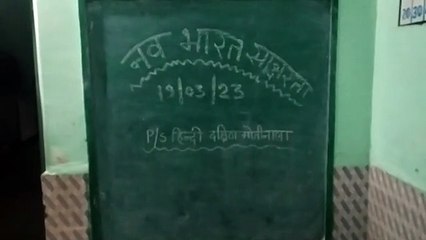 नव भारत साक्षरता
19/03/23
P/S हिन्दी दक्षिण